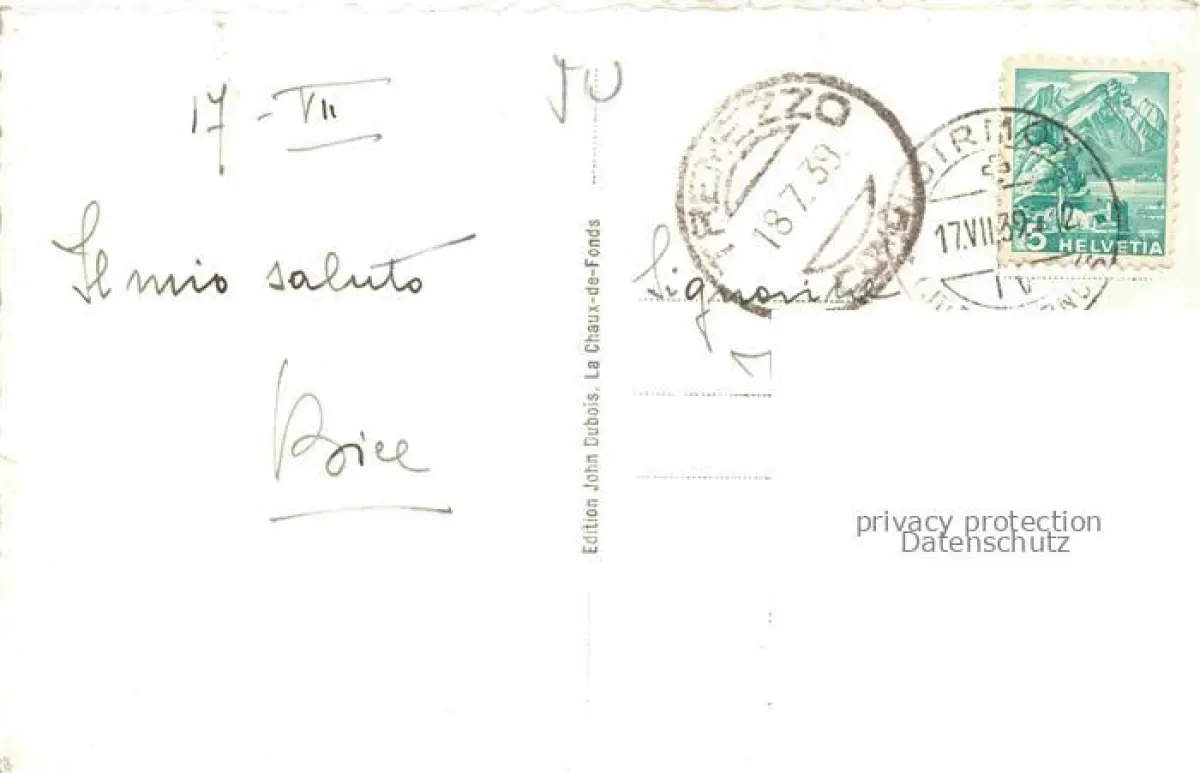 17 - VII
Il mio saluto
Bice
Edition John Dubois, La Chaux-de-Fonds
TREMEZZO
18.7.39
17.VII.39
5 HELVETIA
Signorina
privacy protection
Datenschutz